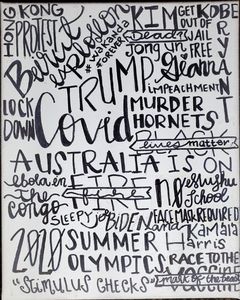 HONG KONG PROTEST
Beirut explosion
KIM Jong Un Dead?
GET OUT OF JAIL FREE
KOBE BRYANT
#wakanda forever
Gianna
TRUMP IMPEACHMENT
LOCK DOWN
Covid
MURDER HORNETS
lives matter
AUSTRALIA IS ON FIRE
ebola in the congo
NO school
SLEEPY joe BIDEN and Kamala Harris
FACE MASK REQUIRED
2020 SUMMER OLYMPICS
RACE TO THE VACCINE
"STIMULUS CHECKS"
mark of the beast